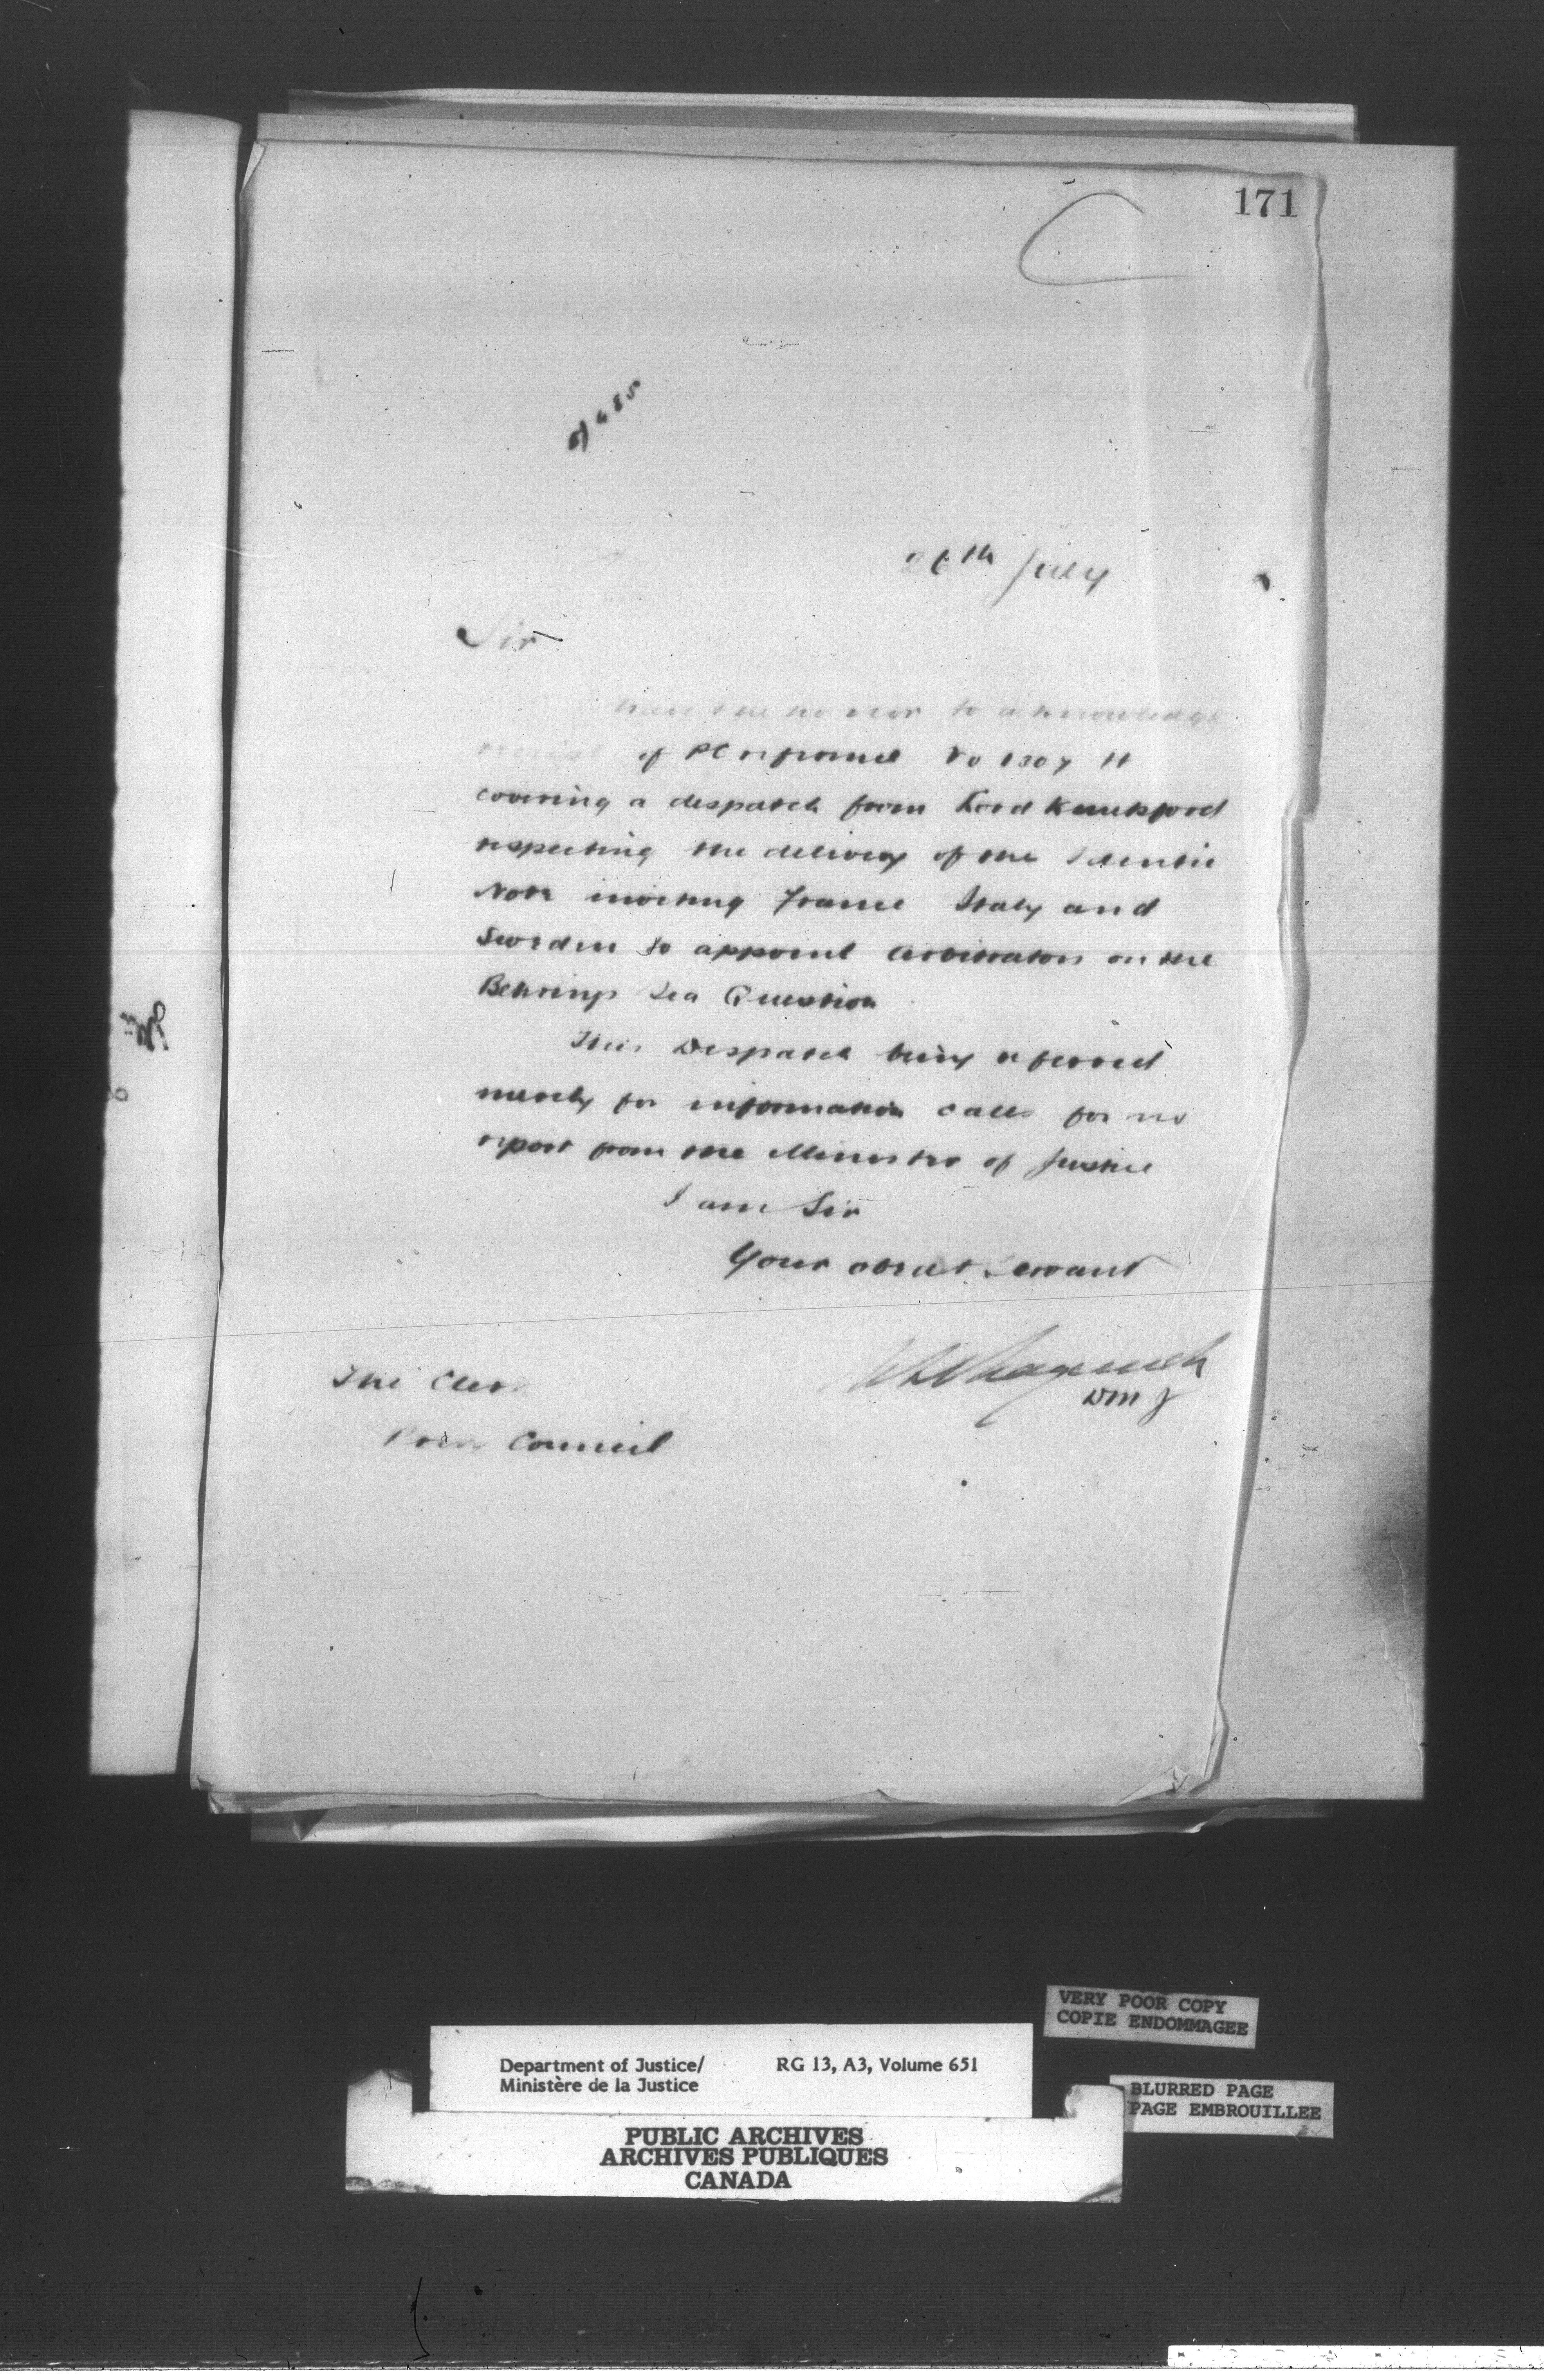 171
26th July
Sir
have the honor to acknowledge
of PC reference No 1307 H
covering a despatch from Lord Knutsford
respecting the delivery of the Identic
Note inviting France Italy and
Sweden to appoint Arbitrators on the
Behrings Sea Question
This Despatch being referred
merely for information calls for no
report from the Minister of Justice
I am Sir
Your obedt Servant
DMJ
The Clerk
Privy Council
VERY POOR COPY
COPIE ENDOMMAGEE
Department of Justice/ RG 13, A3, Volume 651
Ministère de la Justice
BLURRED PAGE
PAGE EMBROUILLEE
PUBLIC ARCHIVES
ARCHIVES PUBLIQUES
CANADA